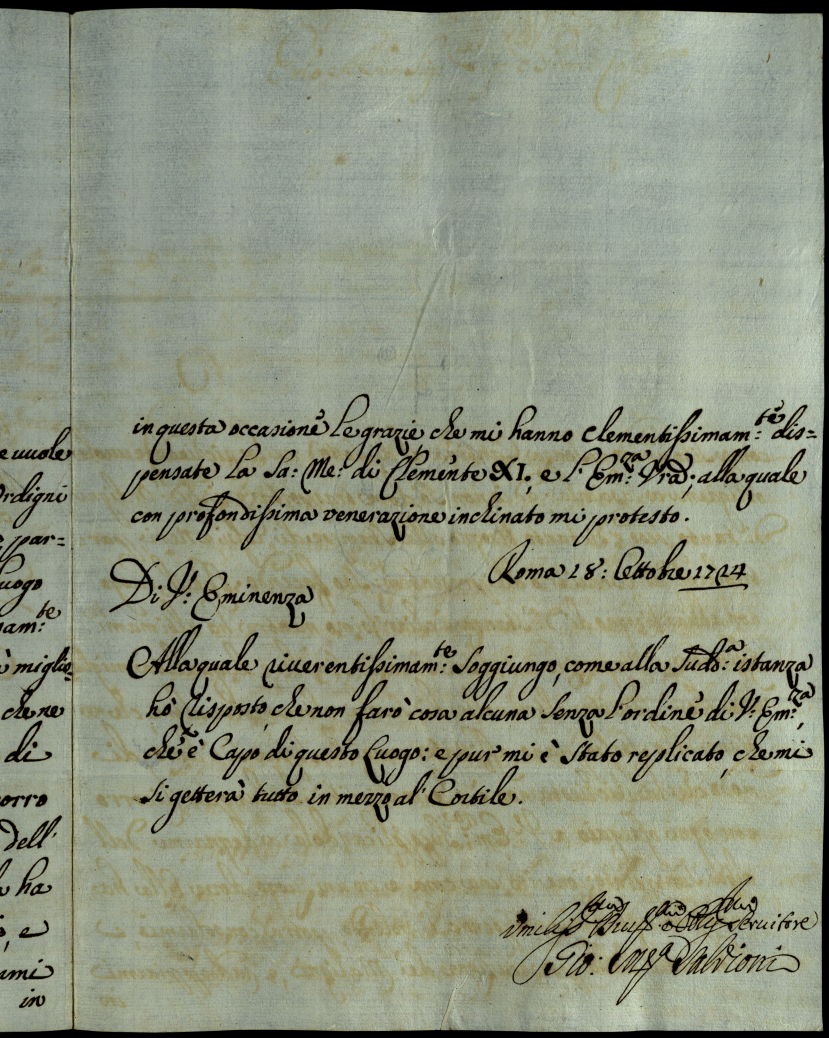 e vuole
Ordigni
par=
luogo
sam:te
è miglio=
che ne
di
corro
dell'
ha
, e
ami
in
in questa occasione le grazie che mi hanno clementissimam:te dis=
pensate la Sa: Me: di Clemente XI, e l' Em:za Vra; alla quale
con profondissima venerazione inclinato mi protesto.
Roma 18: Ottobre 1724
Di V: Eminenza
Alla quale riverentissimam:te soggiungo, come alla Sudd:a istanza
hò risposto, che non farò cosa alcuna senza l'ordine di V: Em:za,
che è Capo di questo luogo: e pur mi è stato replicato, che mi
si getterà tutto in mezzo al' Cortile.
Servitore
Gio: Salvioni